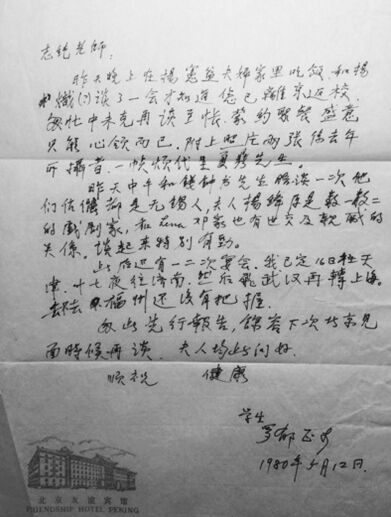 老师:
昨天晚上在杨宪益夫妇家里吃饭,和杨
谈了一会才知道您已离京返校,
匆忙中未克再谈至怅,蒙约聚餐盛意
只能心领而已,附上照片两张係去年
所摄者,一帧烦代呈夏 先生。
昨天中午和钱钟书先生畅谈一次他
们伉俪都是无锡人,夫人杨绛 是数一数二
的戏剧家,和 邓家也有世交及 戚的
关系,谈起来特别有劲。
此后还有一二次宴会,我已定16日赴天
津,十七夜往济南,然后飞武汉再转上海。
去福州还没有把握。
匆此先行报告,馀容下次北京见
面时候再谈,夫人均此问好
顺祝 健康
学生
罗郁正
1980年5月12日.
北京友谊宾馆
FRIENDSHIP HOTEL PEKING